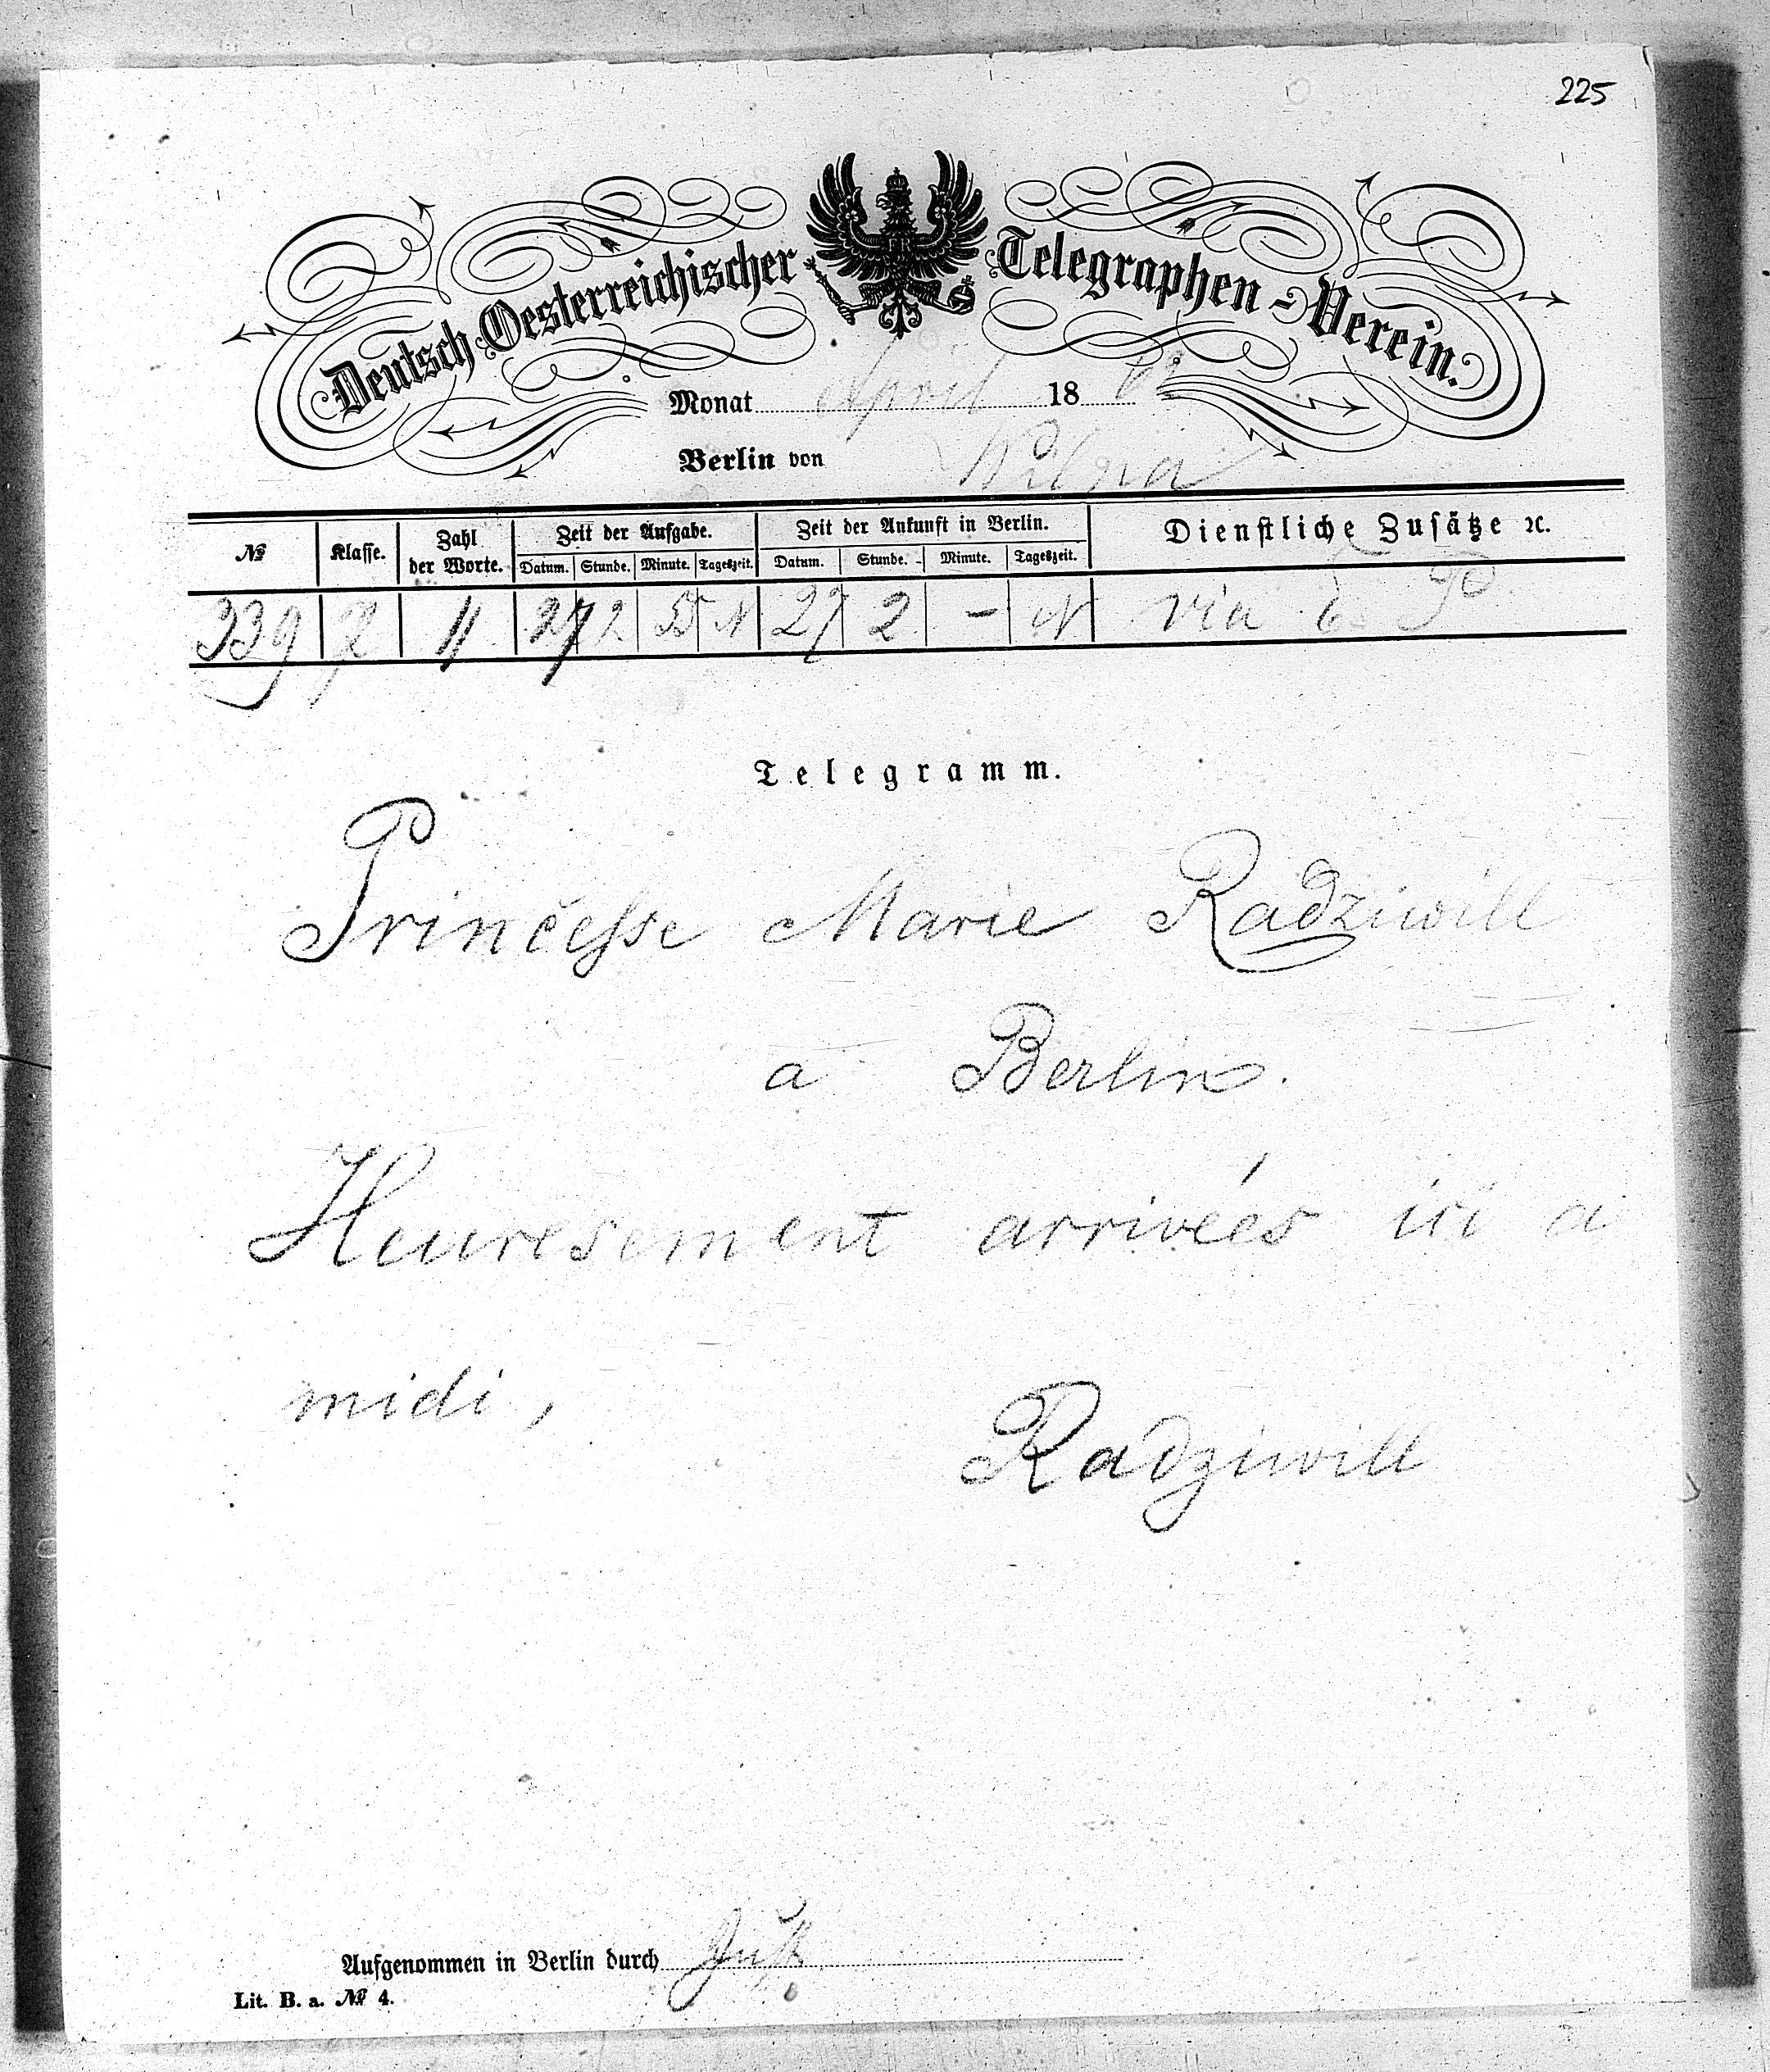 225
Deutsch-Oesterreichischer Telegraphen-Verein.
Monat April 18 62
Berlin von Wilna
№ Klasse. Zahl der Worte. Zeit der Aufgabe. Zeit der Ankunft in Berlin. Dienstliche Zusätze ꝛc.
Datum. Stunde. Minute. Tageszeit. Datum. Stunde. Minute. Tageszeit.
339 11 27 2 N 27 2 – N via
Telegramm.
Princesse Marie Radziwill
a Berlin.
Heuresement arrivées ici a
midi,
Radziwill
Aufgenommen in Berlin durch
Lit. B. a. № 4.